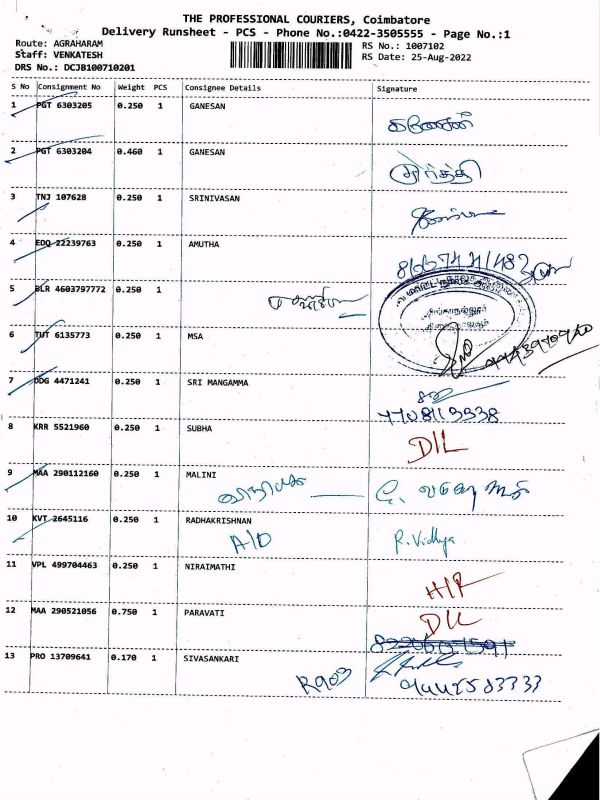 THE PROFESSIONAL COURIERS, Coimbatore
Delivery Runsheet - PCS - Phone No.:0422-3505555 - Page No.:1
Route: AGRAHARAM
Staff: VENKATESH
DRS No.: DCJB100710201
RS No.: 1007102
RS Date: 25-Aug-2022
S No Consignment No Weight PCS Consignee Details Signature
1 PGT 6303205 0.250 1 GANESAN
2 PGT 6303204 0.460 1 GANESAN
3 TNJ 107628 0.250 1 SRINIVASAN
4 EDQ 22239763 0.250 1 AMUTHA
5 BLR 4603797772 0.250 1
6 TUT 6135773 0.250 1 MSA
7 DDG 4471241 0.250 1 SRI MANGAMMA
7708119938
8 KRR 5521960 0.250 1 SUBHA D/L
9 MAA 290112160 0.250 1 MALINI
10 KVT 2645116 0.250 1 RADHAKRISHNAN
A/D R. Vidhya
11 VPL 499704463 0.250 1 NIRAIMATHI
12 MAA 290521056 0.750 1 PARAVATI D/L
13 PRO 13709641 0.170 1 SIVASANKARI
R903 9442583333